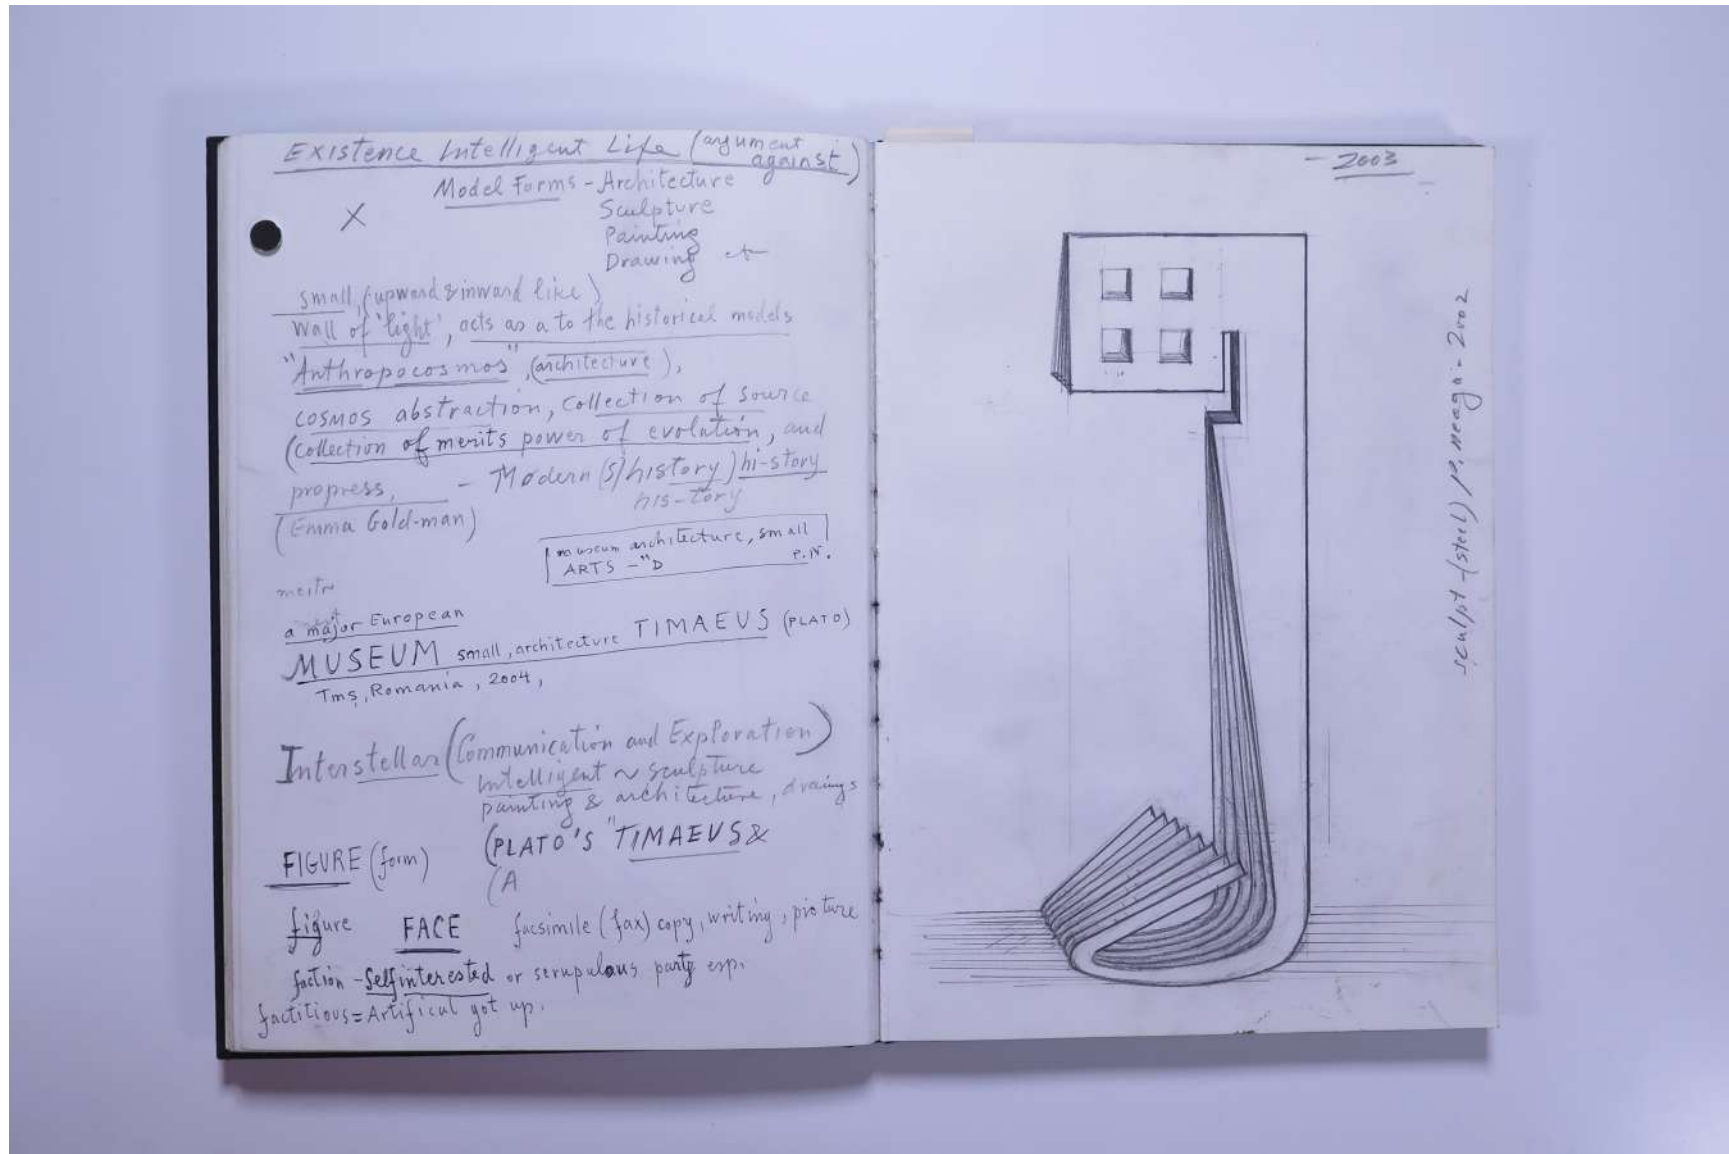 Existence Intelligent Life (argument against)
Model Forms - Architecture
Sculpture
Painting
Drawing
X
small, (upward & inward like)
wall of 'light', acts as a to the historical models
"Anthropocosmos", (architecture),
cosmos abstraction, collection of source
(collection of merits power of evolution, and
propress, - Modern (s)history) hi-story
his-tory
(Emma Gold-man)
museum architecture, small
ARTS - "D P.N.
a major European
MUSEUM small, architecture TIMAEUS (PLATO)
Tmș, Romania, 2004,
Interstellar (Communication and Exploration)
Intelligent ~ sculpture
painting & architecture, draings
(PLATO'S "TIMAEUS &
FIGURE (form)
(A
figure FACE facsimile (fax) copy, writing, picture
faction - Selfinterested or scrupulous party esp.
factitious = Artifical got up.
- 2003
sculpt - (steel) P. Neagu - 2002